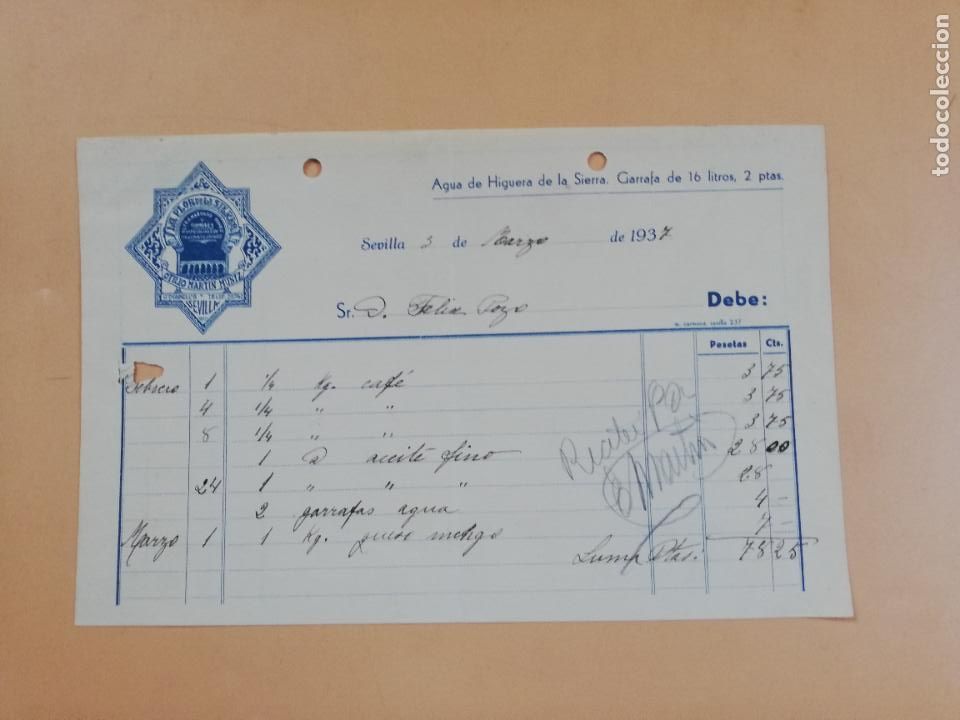 todocoleccion
Agua de Higuera de la Sierra. Garrafa de 16 litros, 2 ptas.
LA FLOR DE LA SIERRA
OTILIO MARTIN MUÑIZ
SEVILLA
Sevilla 3 de Marzo de 1937
Sr. D. Felix Pozo
Debe:
Pesetas Cts.
Febrero 1 1/4 Kg. café 3 75
4 1/4 " " 3 75
8 1/4 " " 3 75
1 @ aceite fino 28 00
24 1 " " " 28
2 garrafas agua 4 -
Marzo 1 1 Kg. queso 7 -
Suma Ptas. 78 25
Recibi Por
Martin